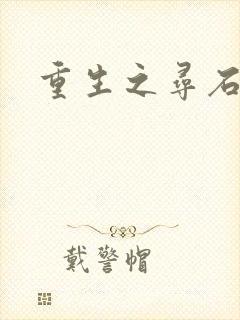 重生之尋石
戴警帽